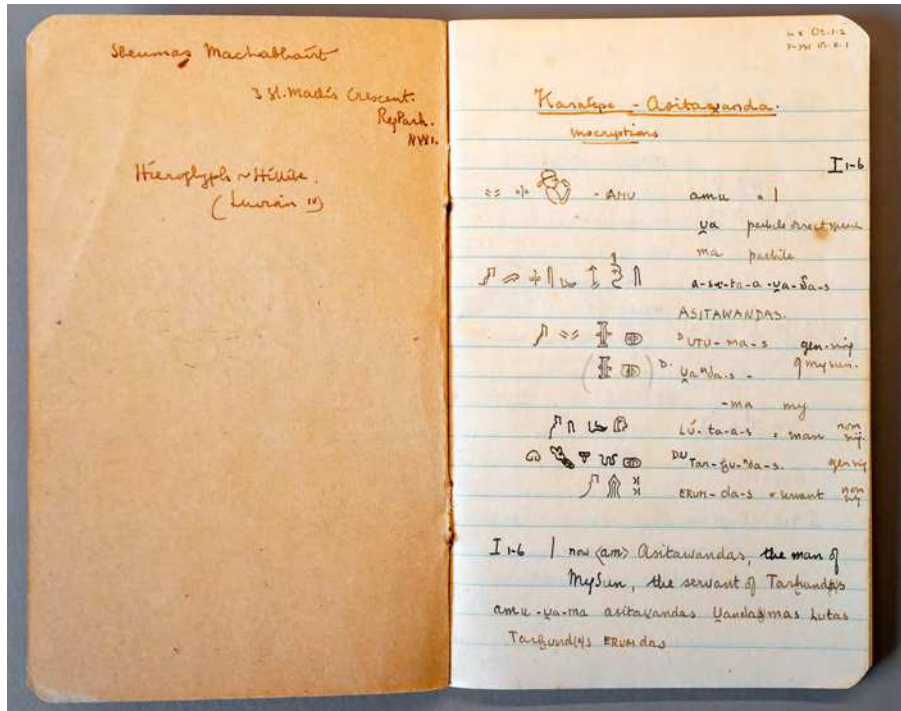 Sheumas Machabhairt
3 St. Mark's Crescent.
Reg Park.
NW1.
Hieroglyphs ~ Hittite.
(Luvian IV)
Karatepe - Asitawanda.
inscriptions
I 1-6
- AMU amu = I
u̯a particle direct speech
ma particle
a-si-ta-a-u̯a-da-s
ASITAWANDAS.
D UTU-ma-s gen. sing
( ) D. u̯a n da-s = of my sun.
-ma my
LÚ-ta-a-s = man nom sing.
DU Tar-ḫu-n da-s. gen sing
ERUM-da-s = servant nom sing
I 1-6 I now <am> Asitawandas, the man of
MySun, the servant of Tarḫundas
amu-u̯a-ma asitau̯andas
Lutas
ERUM das